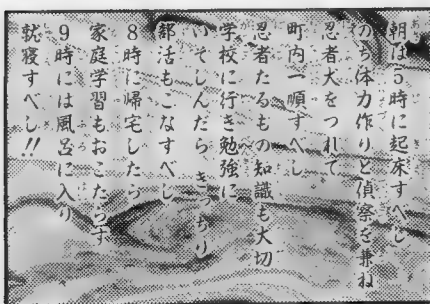 朝は5時に起床すべし
のち体力作りと偵察を兼ね
忍者犬をつれて
町内一順すべし
忍者たるもの知識も大切
学校に行き勉強に
いそしんだら きっちり
部活もこなすべし
8時に帰宅したら
家庭学習もおこたらす
9時には風呂に入り
就寝すべし!!